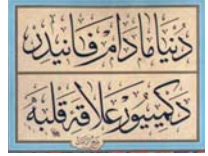 دنیا مادام فانیدر
دکمیور علاقهٔ قلبه